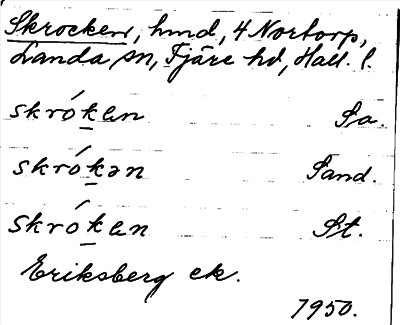 Skrocken, hmd, 4 Nortorp,
Landa sn, Fjäre hd, Hall. l.
skrókan Sa.
skrókən Sand.
skrókan St.
Eriksberg ek.
1950.